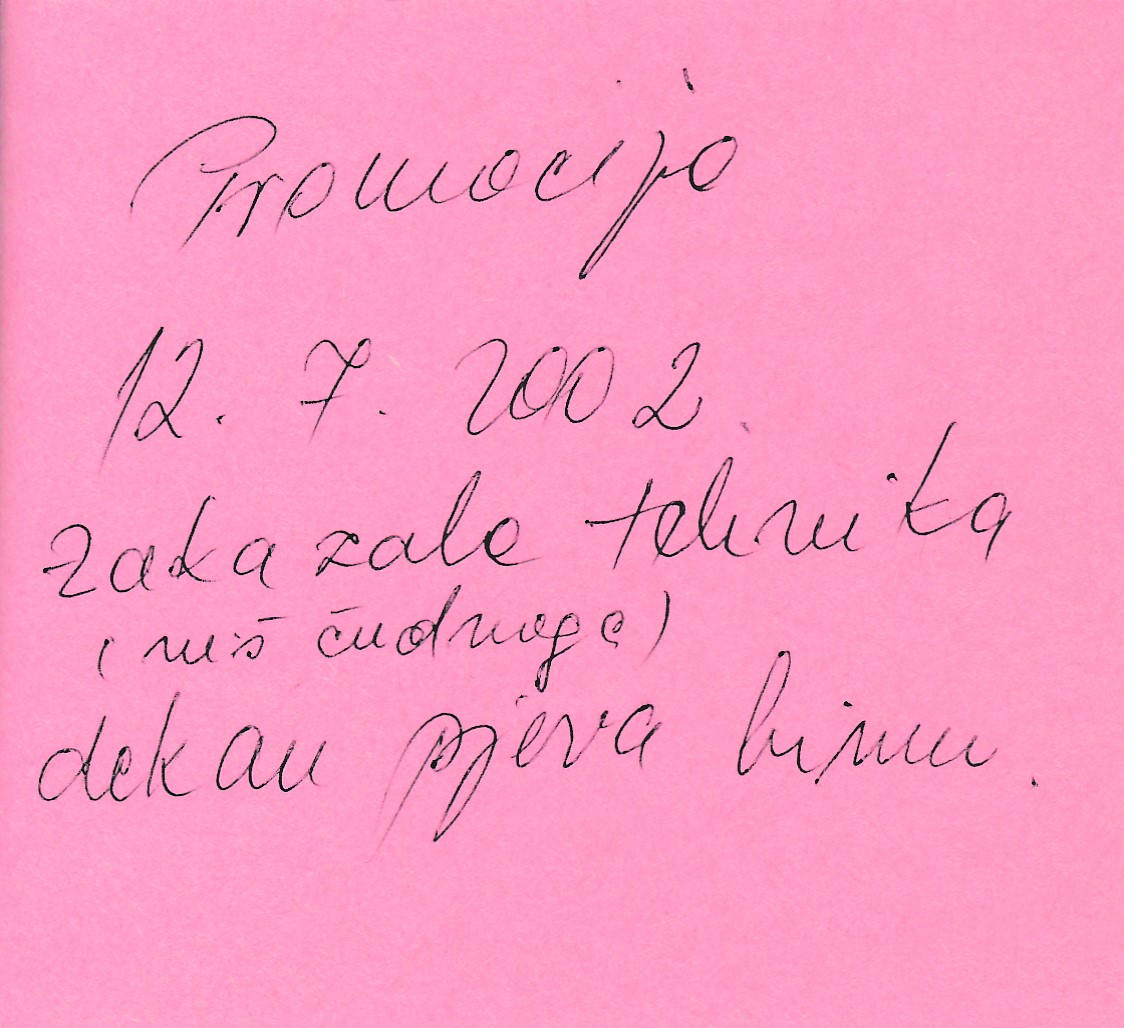 Promocija
12. 7. 2002.
Zakazala tehnika
(niš čudnoga)
dekan pjeva himnu.